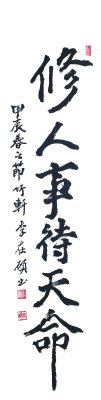 修人事待天命
甲辰春之節竹軒李在碩書